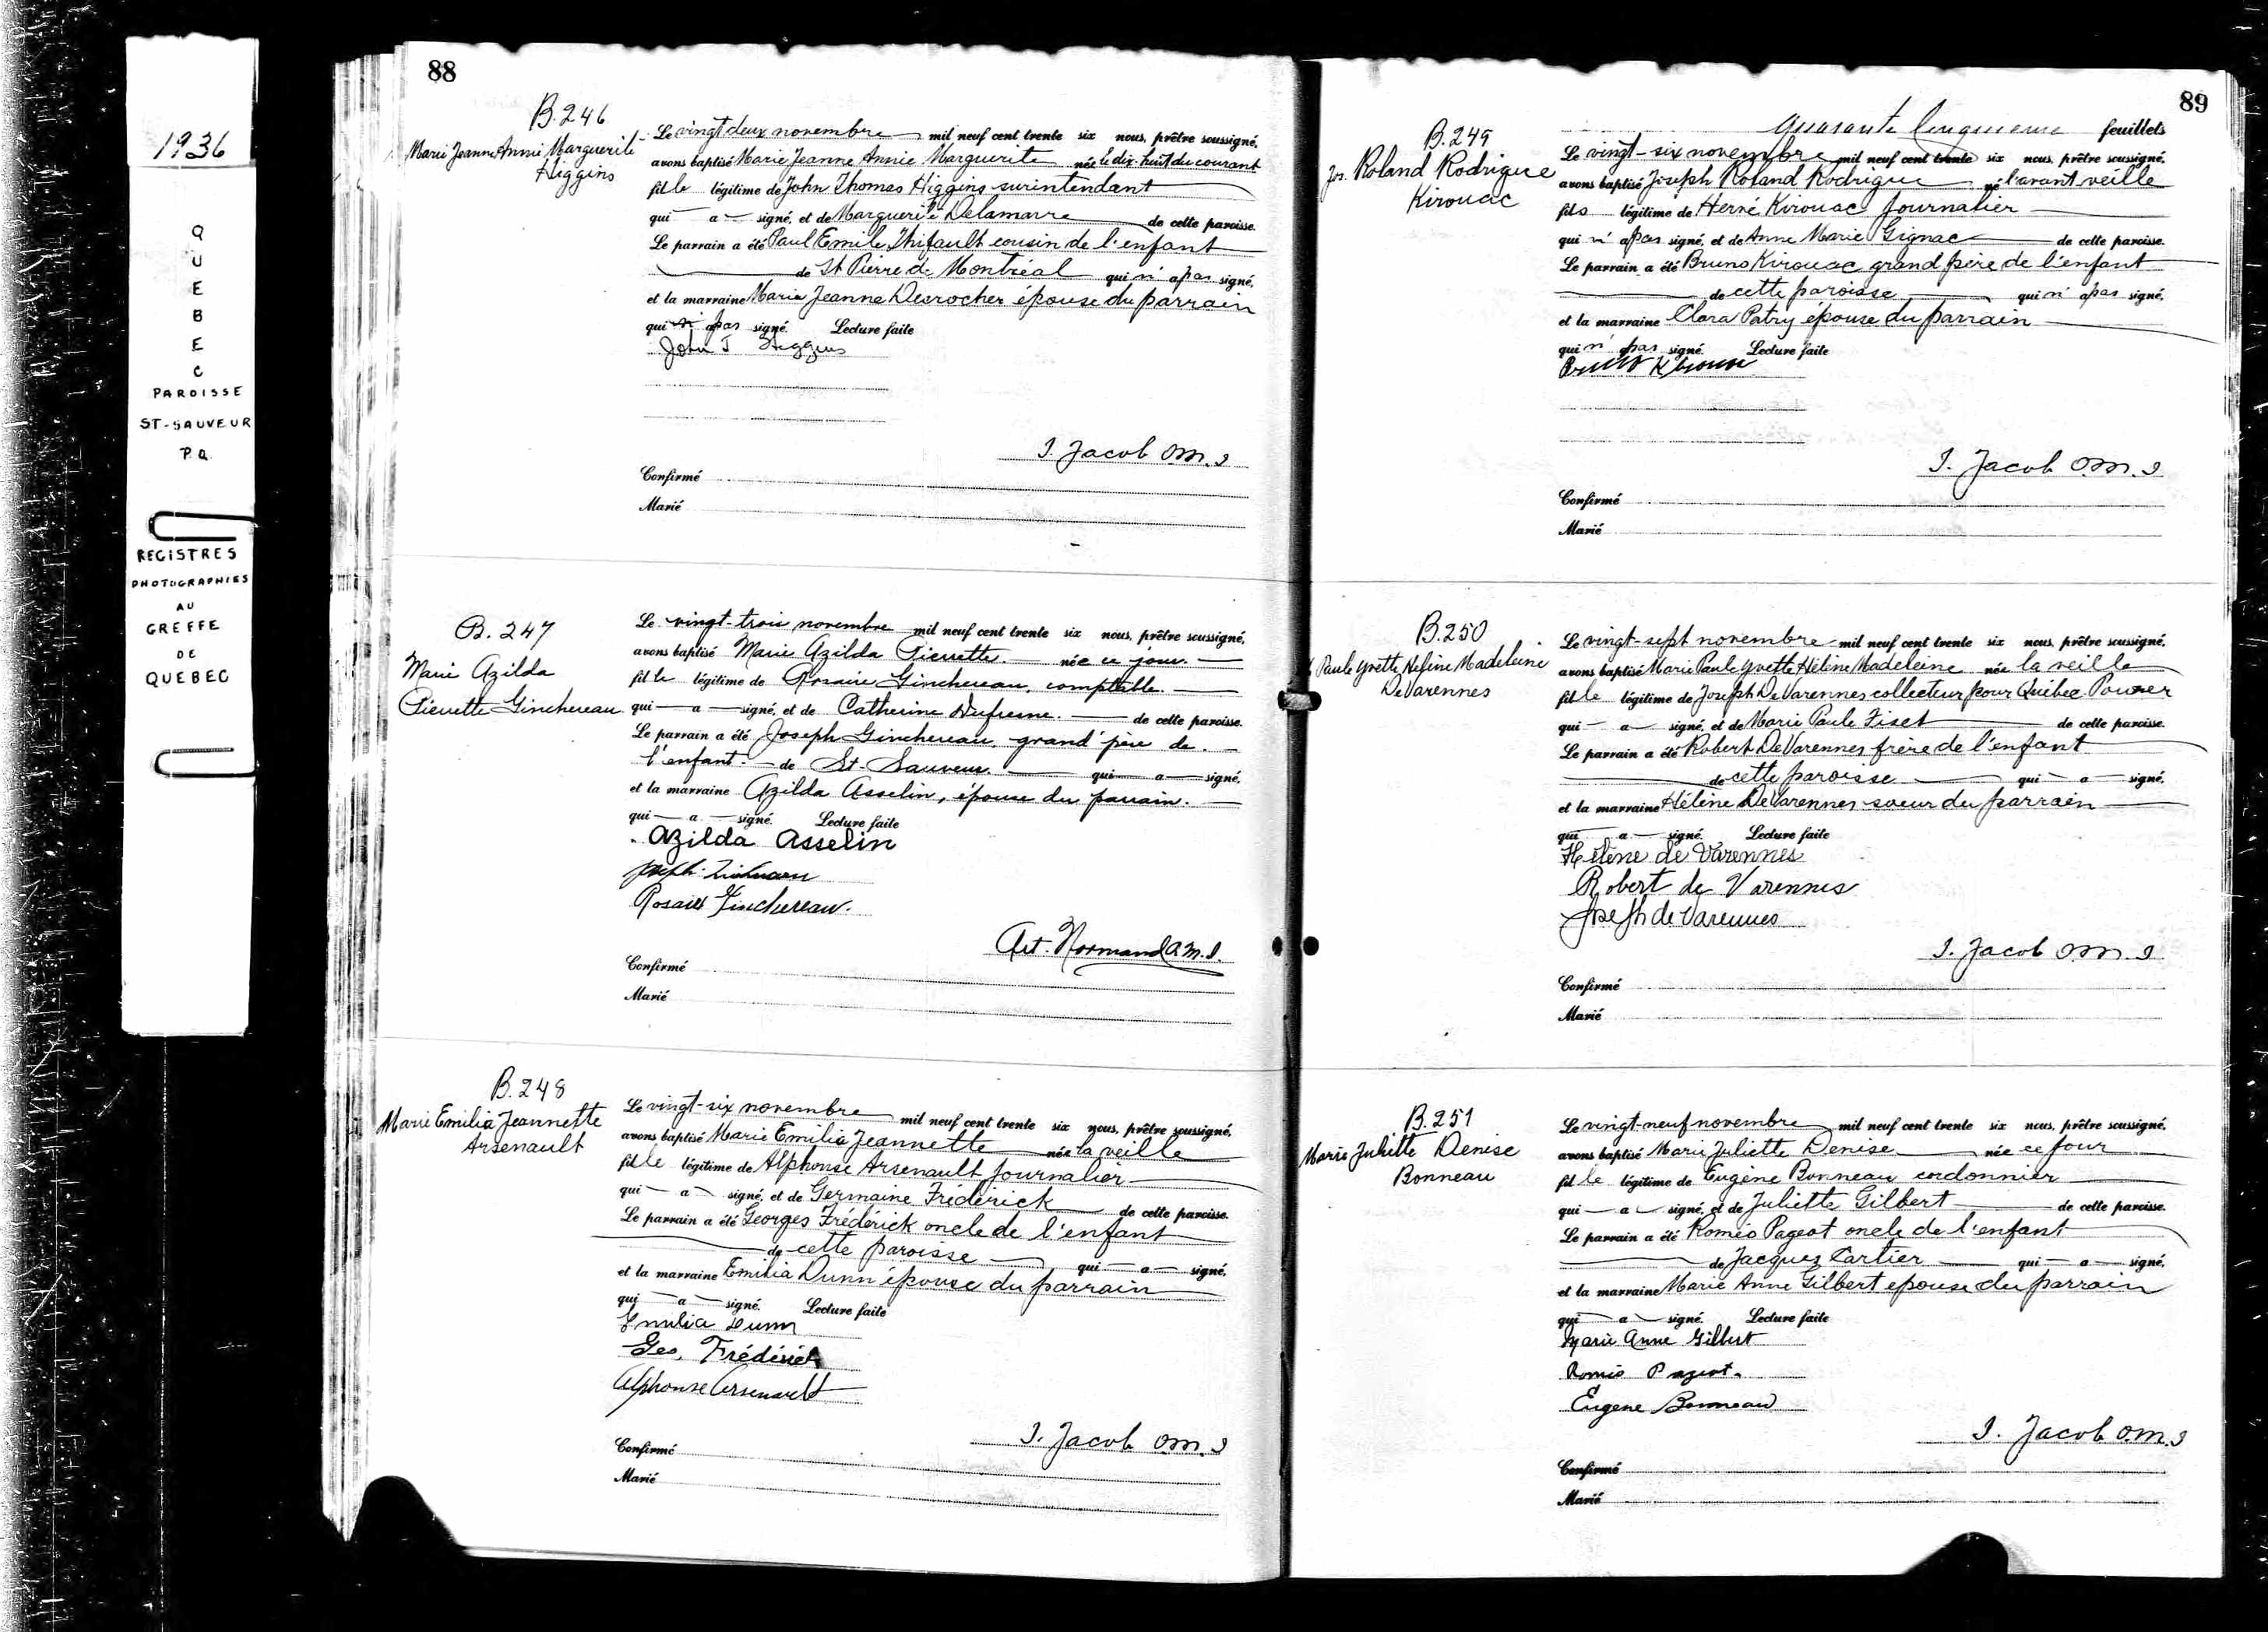 1936
Q
U
E
B
E
C
PAROISSE
ST-SAUVEUR
P.Q.
REGISTRES
PHOTOGRAPHIES
AU
GREFFE
DE
QUEBEC
88
B.246
Marie Jeanne Annie Marguerite
Higgins
Le vingt deux novembre mil neuf cent trente six nous, prêtre soussigné,
avons baptisé Marie Jeanne Annie Marguerite née le dix-huit du courant
fille légitime de John Thomas Higgins surintendant
qui a signé, et de Marguerite Delamarre de cette paroisse.
Le parrain a été Paul Emile Thifault cousin de l'enfant
de St Pierre de Montréal qui n'a pas signé,
et la marraine Marie Jeanne Desrocher épouse du parrain
qui n'a pas signé. Lecture faite
John T Higgins
J. Jacob O.M.I
Confirmé
Marié
B. 247
Marie Azilda
Pierrette Ginchereau
Le vingt-trois novembre mil neuf cent trente six nous, prêtre soussigné,
avons baptisé Marie Azilda Pierrette. née ce jour.
fille légitime de Rosaire Ginchereau, comptable.
qui a signé, et de Catherine Dufresne. de cette paroisse.
Le parrain a été Joseph Ginchereau, grand'père de
l'enfant. de St-Sauveur. qui a signé,
et la marraine Azilda Asselin, épouse du parrain.
qui a signé. Lecture faite
Azilda Asselin
Rosaire Ginchereau.
Art. Normand O.M.I.
Confirmé
Marié
B.248
Marie Emilia Jeannette
Arsenault
Le vingt-six novembre mil neuf cent trente six nous, prêtre soussigné,
avons baptisé Marie Emilia Jeannette née la veille
fille légitime de Alphonse Arsenault journalier
qui a signé, et de Germaine Frédérick de cette paroisse.
Le parrain a été Georges Frédérick oncle de l'enfant
de cette paroisse qui a signé,
et la marraine Emilia Dunn épouse du parrain
qui a signé. Lecture faite
Emilia Dunn
Geo. Frédérick
Alphonse Arsenault
J. Jacob O.M.I
Confirmé
Marié
89
Quarante Cinquième feuillets
B.249
Jos. Roland Rodrigue
Kirouac
Le vingt-six novembre mil neuf cent trente six nous, prêtre soussigné,
avons baptisé Joseph Roland Rodrigue né l'avant veille
fils légitime de Hervé Kirouac journalier
qui n'a pas signé, et de Anne Marie Gignac de cette paroisse.
Le parrain a été Bruno Kirouac grand père de l'enfant
de cette paroisse qui n'a pas signé,
et la marraine Clara Patry épouse du parrain
qui n'a pas signé. Lecture faite
J. Jacob O.M.I
Confirmé
Marié
B.250
Paule Yvette Hélène Madeleine
DeVarennes
Le vingt-sept novembre mil neuf cent trente six nous, prêtre soussigné,
avons baptisé Marie Paule Yvette Hélène Madeleine née la veille
fille légitime de Joseph DeVarennes collecteur pour Québec Power
qui a signé, et de Marie Paule Fiset de cette paroisse.
Le parrain a été Robert DeVarennes frère de l'enfant
de cette paroisse qui a signé,
et la marraine Hélène DeVarennes soeur du parrain
qui a signé. Lecture faite
Hélène de Varennes
Robert de Varennes
Joseph de Varennes
J. Jacob O.M.I
Confirmé
Marié
B.251
Marie Juliette Denise
Bonneau
Le vingt-neuf novembre mil neuf cent trente six nous, prêtre soussigné,
avons baptisé Marie Juliette Denise née ce jour
fille légitime de Eugène Bonneau cordonnier
qui a signé, et de Juliette Gilbert de cette paroisse.
Le parrain a été Roméo Pageot oncle de l'enfant
de Jacques Cartier qui a signé,
et la marraine Marie Anne Gilbert epouse du parrain
qui a signé. Lecture faite
Marie Anne Gilbert
Roméo Pageot.
Eugene Bonneau
J. Jacob O.M.I
Confirmé
Marié